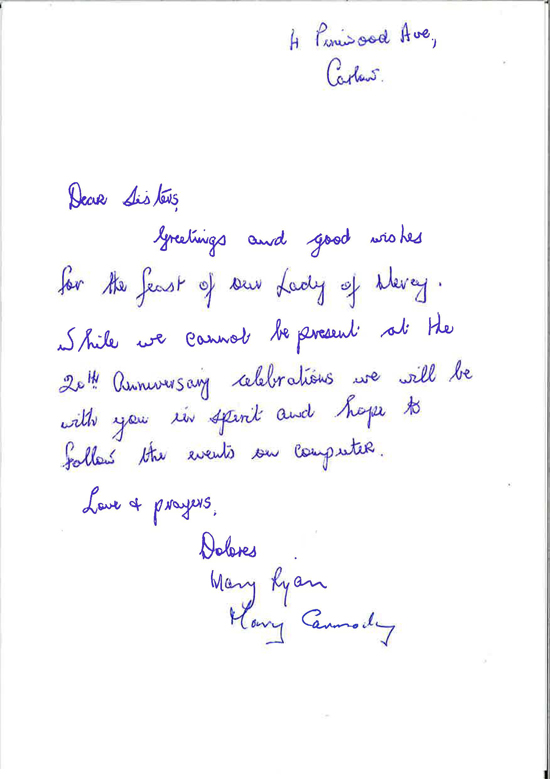 4 Pinewood Ave.,
Carlow.
Dear Sisters,
Greetings and good wishes
for the feast of our Lady of Mercy.
While we cannot be present at the
20TH Anniversary celebrations we will be
with you in spirit and hope to
follow the events on computer.
Love & prayers,
Dolores
Mary Ryan
Mary Carmody